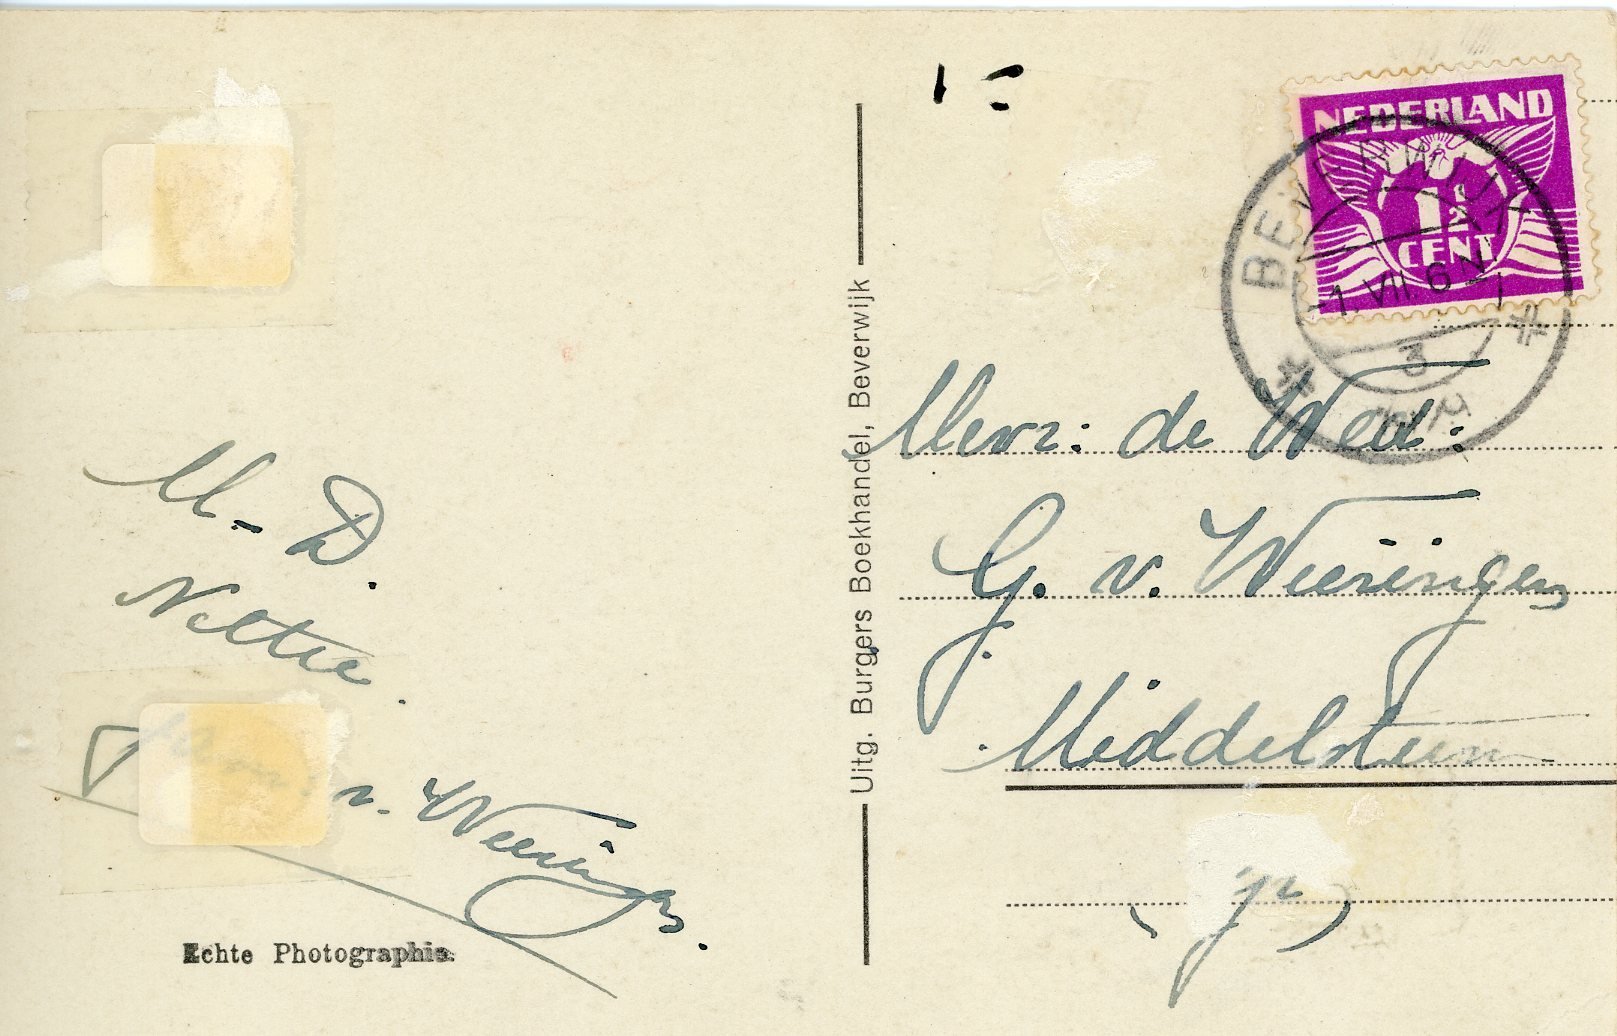 M. D.
Nettie.
v. Wieringen.
Echte Photographie.
Uitg. Burgers Boekhandel, Beverwijk
NEDERLAND
1½
CENT
BEVERWIJK
-1.VII 6N
3
Mevr: de Wed:
G. v. Wieringen
Middelstum
(Gr)